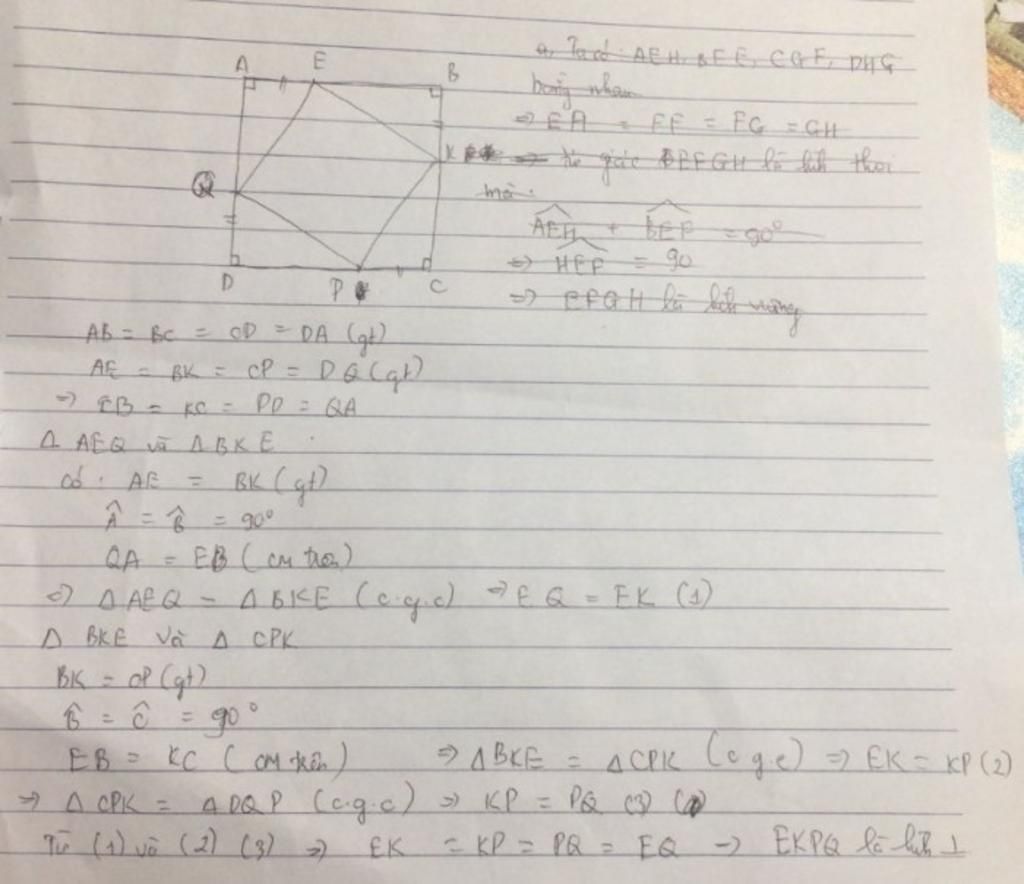 A E B
K
Q
D P C
a, Ta có: AEH, BFE, CGF, DHG
bằng nhau
=> EA = EF = FG = GH
=> tứ giác EFGH là hình thoi
mà:
AEH + BEF = 90°
=> HEF = 90
=> EFGH là hình vuông
AB = BC = CD = DA (gt)
AE = BK = CP = DQ (gt)
=> EB = KC = PD = QA
Δ AEQ và Δ BKE
có: AE = BK (gt)
Â = B̂ = 90°
QA = EB (cm trên)
=> Δ AEQ = Δ BKE (c.g.c) => EQ = EK (1)
Δ BKE và Δ CPK
BK = CP (gt)
B̂ = Ĉ = 90°
EB = KC (cm trên) => Δ BKE = Δ CPK (c.g.c) => EK = KP (2)
=> Δ CPK = Δ DQP (c.g.c) => KP = PQ (3)
Từ (1) và (2) (3) => EK = KP = PQ = EQ -> EKPQ là hình ⊥